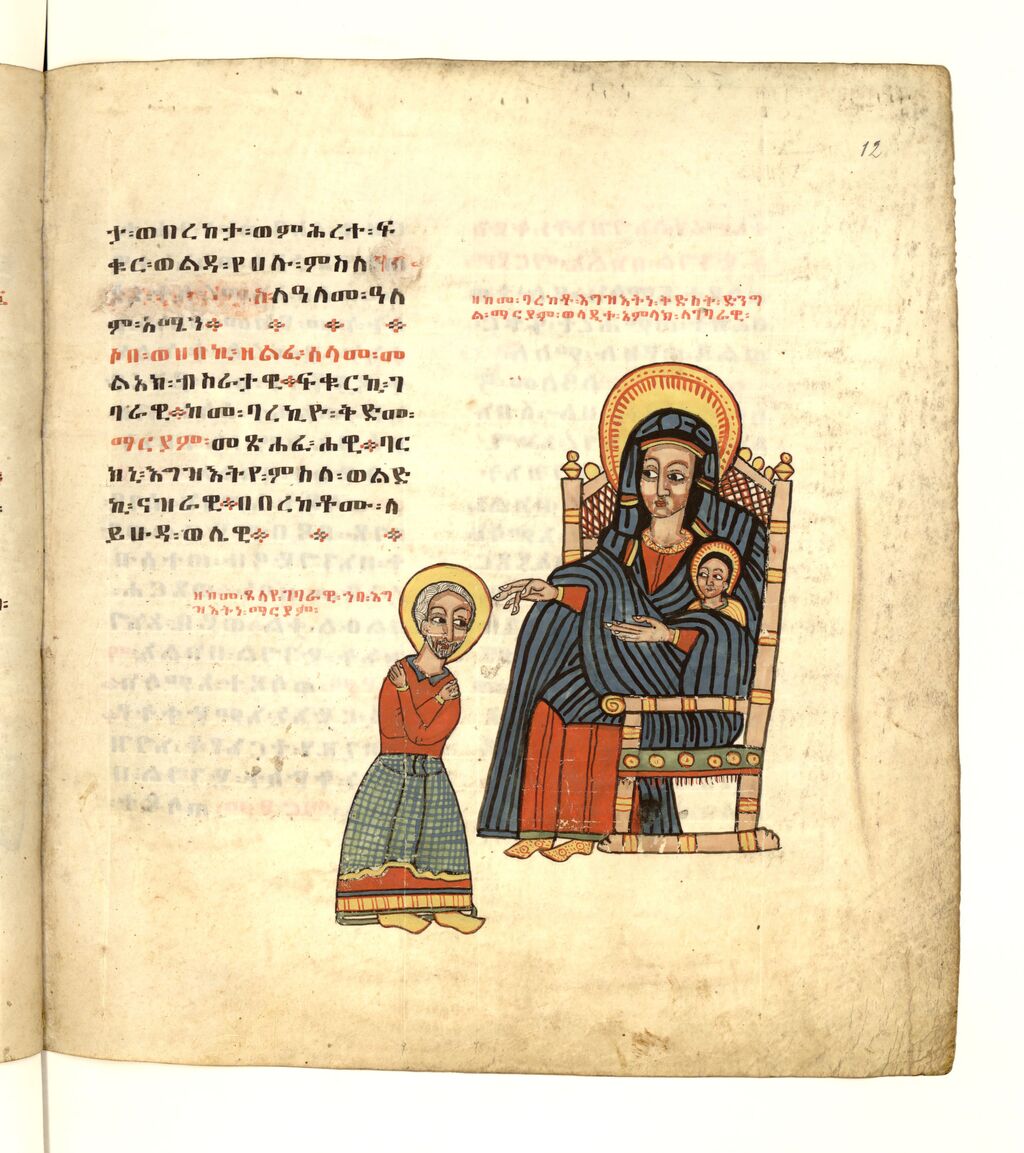 ታ፡ወበረከታ፡ወምሕረተ፡ፍ
ቁር፡ወልዳ፡የሀሉ፡ምስለ
ለዓለመ፡ዓለ
ም፡አሜን፨ ፨ ፨ ፨
ኦበ፡ወሀበኪ፡ዘልፈ፡ሰላመ፡መ
ልአክ፡ብስራታዊ፨ፍቁርኪ፡ገ
ባራዊ፨ከመ፡ባረኪዮ፡ቅድመ፡
ማርያም፡መጽሐፈ፡ሐዊ፨ባር
ክኒ፡እግዝእትየ፡ምስለ፡ወልድ
ኪ፡ናዝራዊ፨በበረከቶሙ፡ለ
ይሁዳ፡ወሌዊ፨ ፨ ፨
ዘከመ፡ባረከቶ፡እግዝእትነ፡ቅድስት፡ድንግ
ል፡ማርያም፡ወላዲተ፡አምላክ፡ለገባራዊ፡
ዘከመ፡ጸለየ፡ገባራዊ፡ኀበ፡እግ
ዝእትነ፡ማርያም፡
12